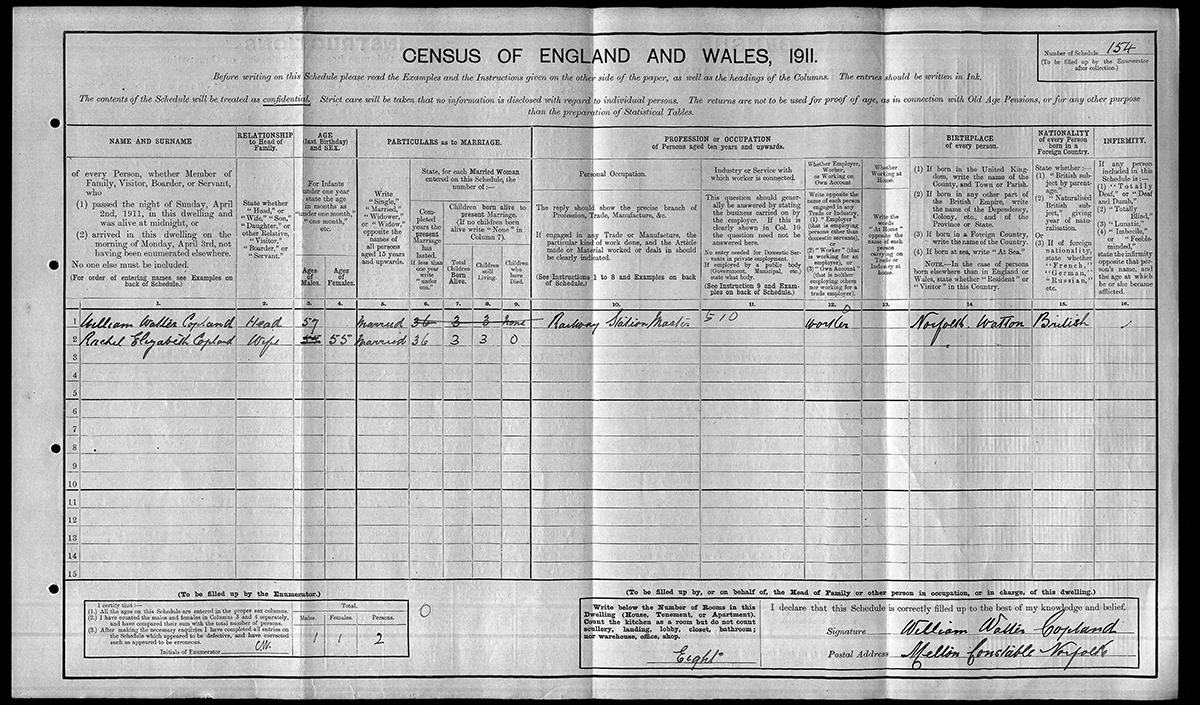 CENSUS OF ENGLAND AND WALES, 1911.
Number of Schedule 154
(To be filled up by the Enumerator
after collection.)
Before writing on this Schedule please read the Examples and the Instructions given on the other side of the paper, as well as the headings of the Columns. The entries should be written in Ink.
The contents of the Schedule will be treated as confidential. Strict care will be taken that no information is disclosed with regard to individual persons. The returns are not to be used for proof of age, as in connection with Old Age Pensions, or for any other purpose
than the preparation of Statistical Tables.
NAME AND SURNAME
of every Person, whether Member of
Family, Visitor, Boarder, or Servant,
who
(1) passed the night of Sunday, April
2nd, 1911, in this dwelling and
was alive at midnight, or
(2) arrived in this dwelling on the
morning of Monday, April 3rd, not
having been enumerated elsewhere.
No one else must be included.
(For order of entering names see Examples on
back of Schedule.)
RELATIONSHIP
to Head of
Family.
State whether
"Head," or
"Wife," "Son,"
"Daughter," or
other Relative,
"Visitor,"
"Boarder," or
"Servant."
AGE
(last Birthday)
and SEX.
For Infants
under one year
state the age
in months as
"under one month,"
"one month,"
etc.
Ages
of
Males.
Ages
of
Females.
PARTICULARS as to MARRIAGE.
Write
"Single,"
"Married,"
"Widower,"
or "Widow,"
opposite the
names of
all persons
aged 15 years
and upwards.
State, for each Married Woman
entered on this Schedule, the
number of:—
Completed
years the
present
Marriage
has
lasted.
If less than
one year
write
"under
one."
Children born alive to
present Marriage.
(If no children born
alive write "None" in
Column 7).
Total
Children
Born
Alive.
Children
still
Living.
Children
who
have
Died.
PROFESSION or OCCUPATION
of Persons aged ten years and upwards.
Personal Occupation.
The reply should show the precise branch of
Profession, Trade, Manufacture, &c.
If engaged in any Trade or Manufacture, the
particular kind of work done, and the Article
made or Material worked or dealt in should
be clearly indicated.
(See Instructions 1 to 8 and Examples on back
of Schedule.)
Industry or Service with
which worker is connected.
This question should generally
be answered by stating
the business carried on by
the employer. If this is
clearly shown in Col. 10
the question need not be
answered here.
No entry needed for Domestic Servants
in private employment.
If employed by a public body
(Government, Municipal, etc.)
state what body.
(See Instruction 9 and Examples
on back of Schedule.)
Whether Employer,
Worker,
or Working on
Own Account
Write opposite the
name of each person
engaged in any
Trade or Industry,
(1) "Employer"
(that is employing
persons other than
domestic servants),
or
(2) "Worker" (that
is working for an
employer), or
(3) "Own Account"
(that is neither
employing others
nor working for a
trade employer).
Whether
Working at
Home.
Write the
words
"At Home"
opposite the
name of each
person
carrying on
Trade or
Industry at
home.
BIRTHPLACE
of every person.
(1) If born in the United Kingdom,
write the name of the
County, and Town or Parish.
(2) If born in any other part of
the British Empire, write
the name of the Dependency,
Colony, etc., and of the
Province or State.
(3) If born in a Foreign Country,
write the name of the Country.
(4) If born at sea, write "At Sea."
NOTE.—In the case of persons
born elsewhere than in England or
Wales, state whether "Resident" or
"Visitor" in this Country.
NATIONALITY
of every Person
born in a
Foreign Country.
State whether:—
(1) "British
subject by parentage,"
(2) "Naturalised
British subject,"
giving
year of naturalisation.
Or
(3) If of foreign
nationality,
state whether
"French,"
"German,"
"Russian,"
etc.
INFIRMITY.
If any person
included in this
Schedule is:—
(1) "Totally
Deaf," or "Deaf
and Dumb,"
(2) "Totally
Blind,"
(3) "Lunatic,"
(4) "Imbecile,"
or "Feeble-
minded,"
state the infirmity
opposite that person's
name, and
the age at which
he or she became
afflicted.
1. 2. 3. 4. 5. 6. 7. 8. 9. 10. 11. 12. 13. 14. 15. 16.
1 William Walter Copland Head 57 Married 36 3 3 None Railway Station Master 510 Worker Norfolk Watton British
2 Rachel Elizabeth Copland Wife 55 Married 36 3 3 0
3
4
5
6
7
8
9
10
11
12
13
14
15
(To be filled up by the Enumerator.)
I certify that:—
(1.) All the ages on this Schedule are entered in the proper sex columns.
(2.) I have counted the males and females in Columns 3 and 4 separately,
and have compared their sum with the total number of persons.
(3.) After making the necessary enquiries I have completed all entries on
the Schedule which appeared to be defective, and have corrected
such as appeared to be erroneous.
Initials of Enumerator
Total.
Males. Females. Persons.
1 1 2
0
(To be filled up by, or on behalf of, the Head of Family or other person in occupation, or in charge, of this dwelling.)
Write below the Number of Rooms in this
Dwelling (House, Tenement, or Apartment).
Count the kitchen as a room but do not count
scullery, landing, lobby, closet, bathroom;
nor warehouse, office, shop.
Eight
I declare that this Schedule is correctly filled up to the best of my knowledge and belief.
Signature William Walter Copland
Postal Address Melton Constable Norfolk